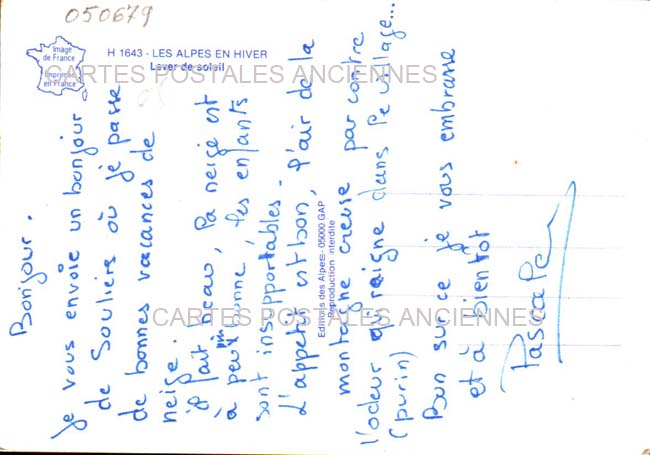 050679
Image
de France
Imprimée
en France
H 1643 - LES ALPES EN HIVER
Lever de soleil
CARTES POSTALES ANCIENNES
Bonjour.
Je vous envoie un bonjour
de Souliers où je passe
de bonnes vacances de
neige.
il fait beau, la neige est
à peu bonne, les enfants
sont insupportables -
L'appetit est bon, l'air de la
montagne creuse par contre
l'odeur qui raigne dans le village...
(purin)
Bon sur ce je vous embrasse
et à bientot
Pascale
Editions des Alpes - 05000 GAP
Reproduction interdite
CARTES POSTALES ANCIENNES